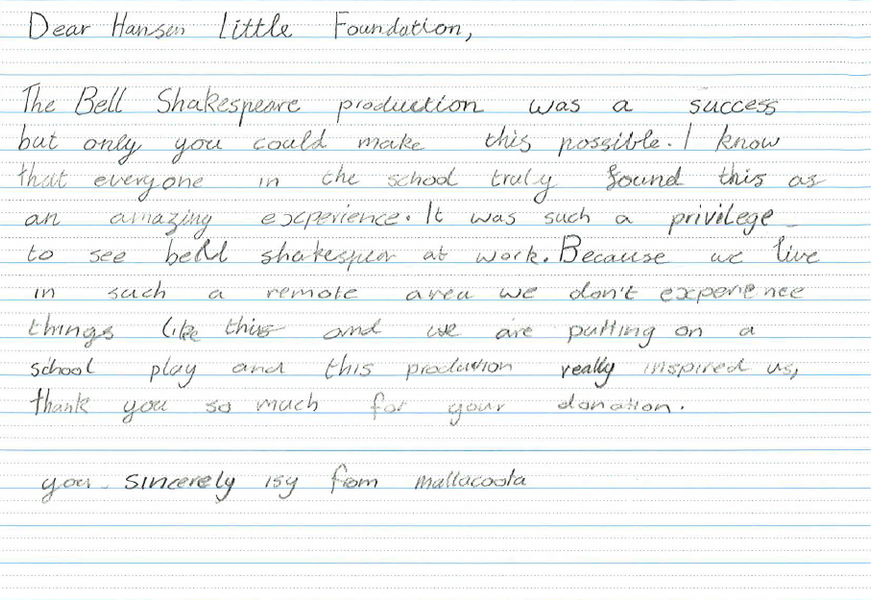 Dear Hansen Little Foundation,
The Bell Shakespeare production was a success
but only you could make this possible. I know
that everyone in the school truly found this as
an amazing experience. It was such a privilege
to see bell shakespear at work. Because we live
in such a remote area we don't experience
things like this and we are putting on a
school play and this production really inspired us,
thank you so much for your donation.
your sincerely isy from mallacoota